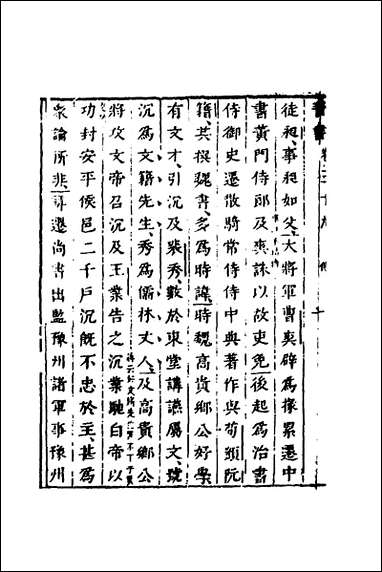 徒昶事昶如父大將軍曹爽辟爲掾累遷中
書黃門侍郎及爽誅以故吏免後起爲治書
侍御史遷散騎常侍侍中典著作與荀顗阮
籍共撰魏書多爲時諱時魏高貴鄉公好學
有文才引沉及裴秀數於東堂講讌屬文號
沉爲文籍先生秀爲儒林丈人及高貴鄉公
將攻文帝召沉及王業告之沉業馳白帝以
功封安平侯邑二千戶沉既不忠於主甚爲
衆論所非尋遷尚書出監豫州諸軍事豫州